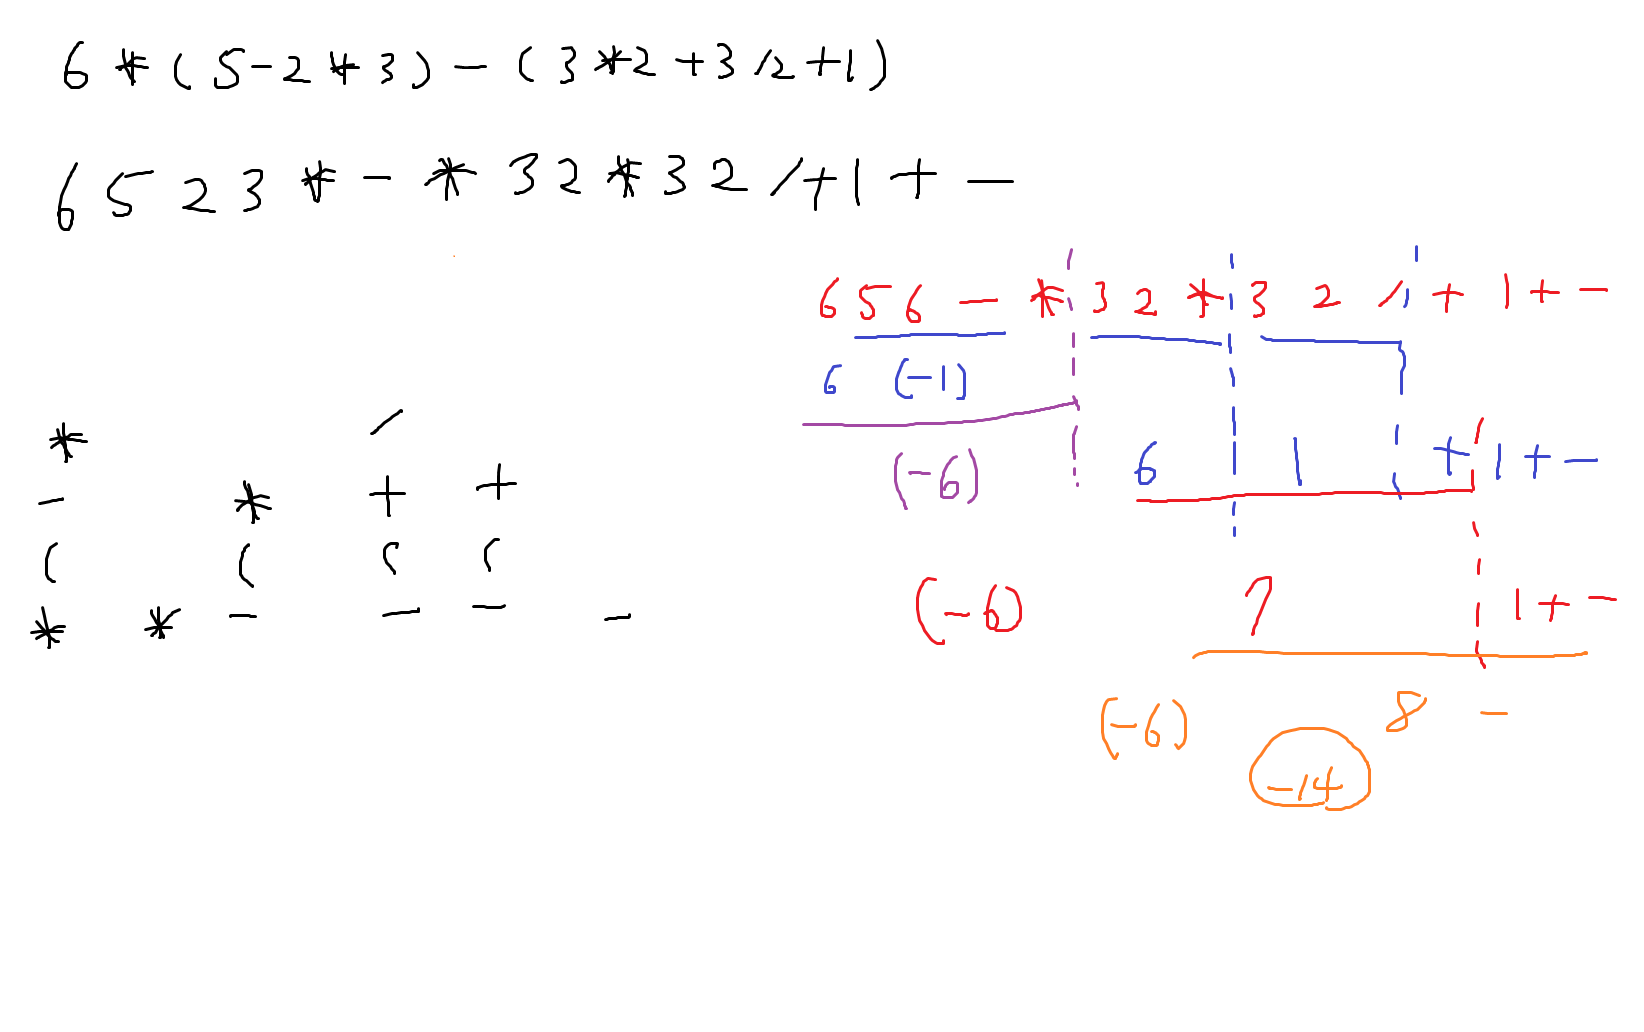 6 * ( 5 - 2 * 3 ) - ( 3 * 2 + 3 / 2 + 1 )
6 5 2 3 * - * 3 2 * 3 2 / + 1 + -
6 5 6 - * 3 2 * 3 2 / + 1 + -
6 (-1)
* /
6 1 + 1 + -
(-6)
- * + +
( ( ( (
* * - - - -
(-6) 7 1 + -
(-6) 8 -
-14